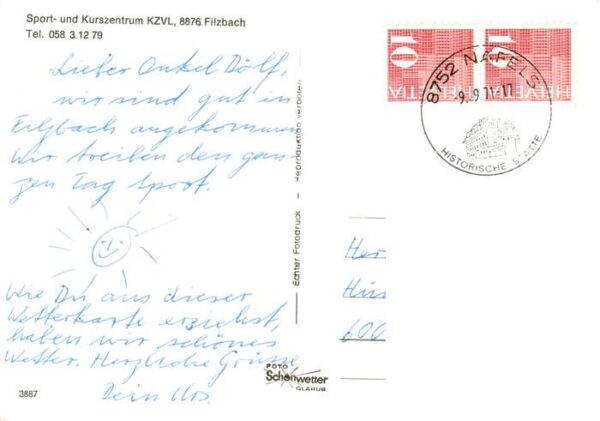 Sport- und Kurszentrum KZVL, 8876 Filzbach
Tel. 058 3 12 79
Lieber Onkel Dölf,
wir sind gut in
Filzbach angekommen
Wir treiben den gan-
zen Tag Sport.
Wie Du aus dieser
Wetterkarte ersiehst,
haben wir schönes
Wetter. Herzliche Grüsse
Dein Urs.
3887
Echter Fotodruck - Reproduktion verboten
FOTO
Schönwetter
GLARUS
10 10
HELVETIA HELVETIA
8752 NÄFELS
-9.-9.71-17
HISTORISCHE STÄTTE
Her
Hüs
600